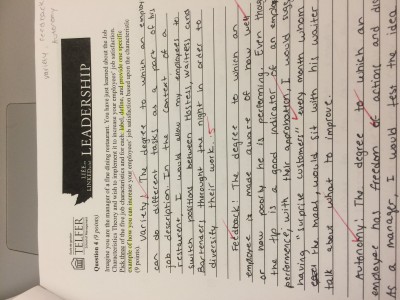 variety, feedback
autonomy
TELFER
LIFE
LINKED TO
LEADERSHIP
Question 4 (9 points)
Imagine you are the manager of a fine dining restaurant. You have just learned about the Job
Characteristics Theory and wish to implement it to increase your employees' job satisfaction.
Pick three of the five job characteristics and for each, label, define, and provide one specific
example of how you can increase your employees' job satisfaction based upon the characteristic
(9 points)
Variety: The degree to which an employee
can do different tasks as a part of his
job description. In the context of a
restaurant I would allow my employees to
switch positions between Hostess, Waitress and
Bartender, throught the night in order to
diversity their work.
Feedback: The degree to which an
employee is made aware of how well
or how poorly he is performing. Even though
the tip is a good indicator of an employee
performence, with their approbation, I would
having "surprise customer" every month whom
the meal, would sit with his waiter
talk about what to improve.
Autonomy: The degree to which an
employee has freedom of actions and
As a manager I would test the idea